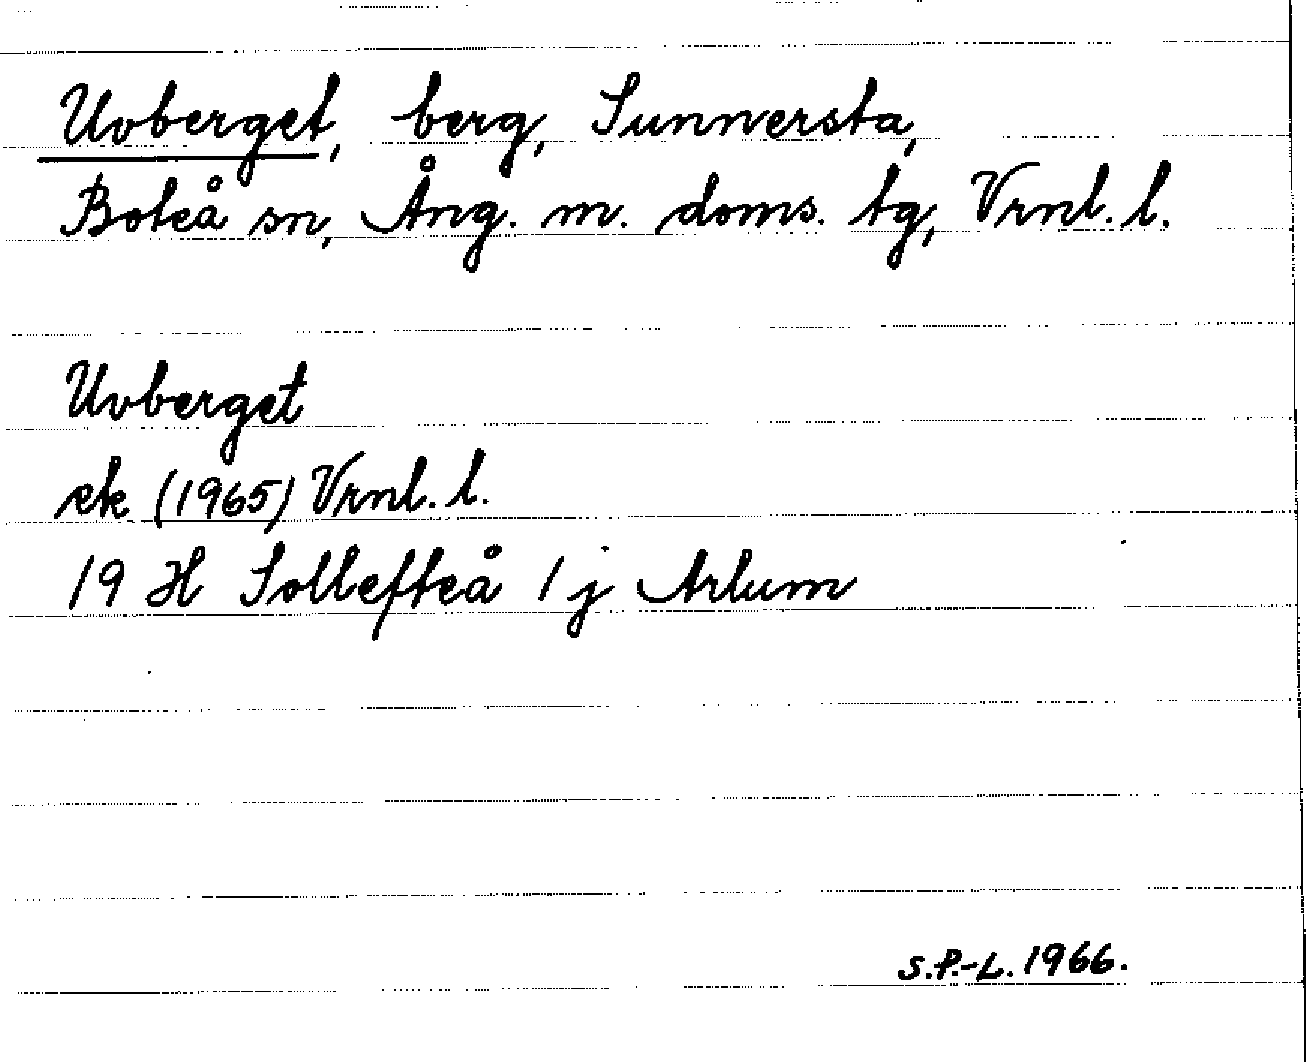 Uvberget, berg, Sunnersta,
Boteå sn, Ång. m. doms. tg, Vrnl. l.
Uvberget
ek (1965) Vrnl. l.
19 H Sollefteå 1 j Arlum
S.P.-L. 1966.